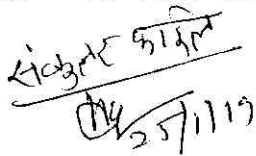 संकुलर फाईल
25/1/19